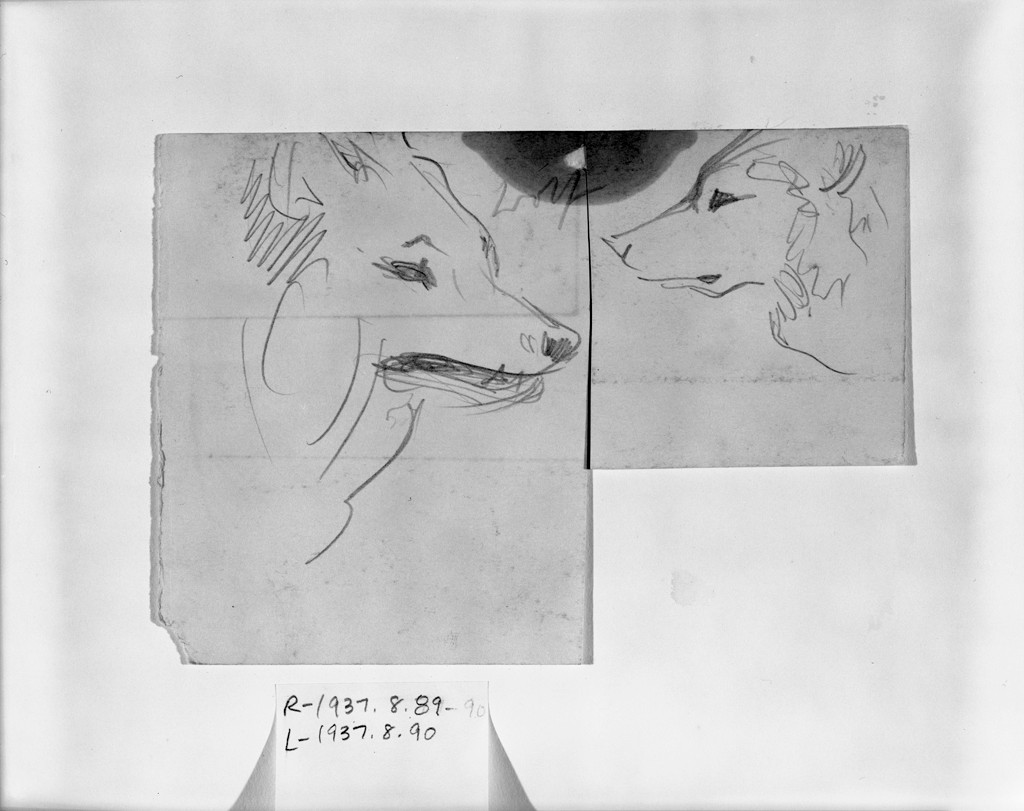 R-1937.8.89-90
L-1937.8.90